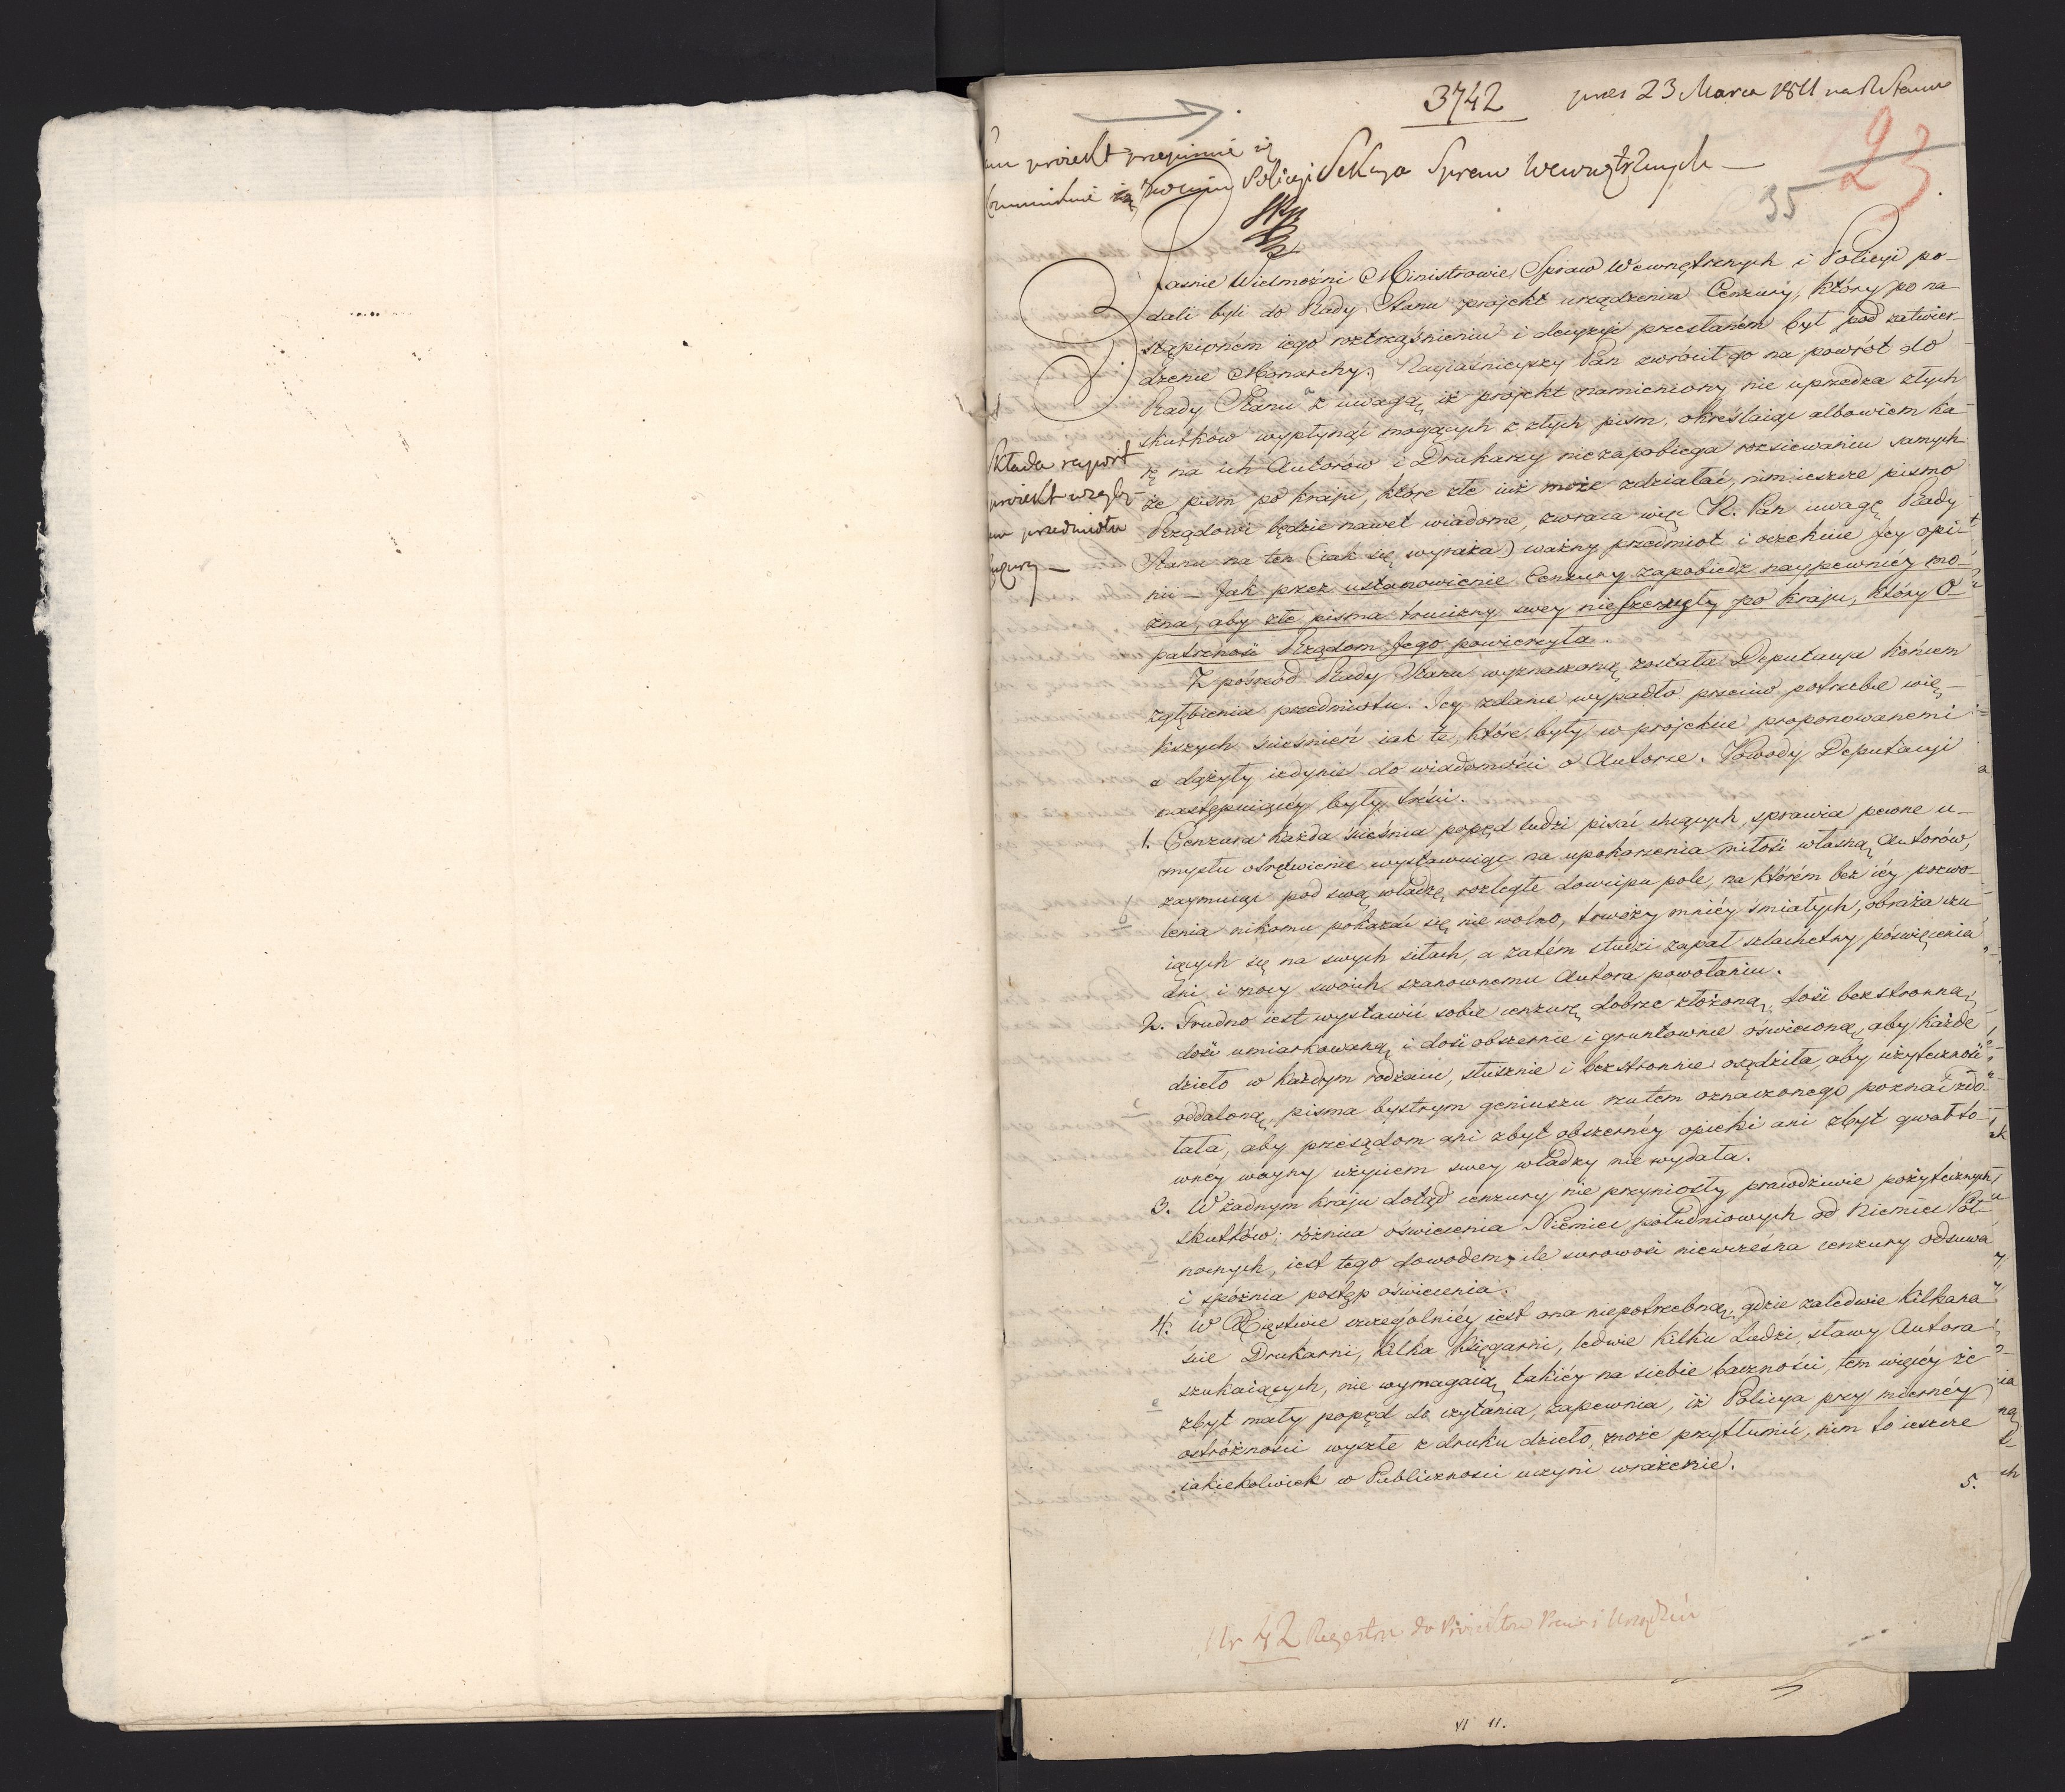 3742
23 Marca 1811 na R. Stanu
23
35
projekt przepisuie się
Policyi Sekcya Spraw Wewnętrznych —
Jaśnie Wielmożni Ministrowie Spraw Wewnętrznych i Policyi po-
dali byli do Rady Stanu projekt urządzenia Cenzury, który po na
stąpionem iego roztrząśnieniu i decyzyi przesłanem był pod zatwier-
dzenie Monarchy. Nayiaśnieyszy Pan zwrócił go na powrót do
Rady Stanu z uwagą iż projekt namieniony nie uprzedza złych
skutków wypłynąć mogących z złych pism, określaiąc albowiem ka-
rę na ich Autorów i Drukarzy niezapobiega rozsiewaniu samych
że pism po kraju, które złe iuż może zdziałać, nim ieszcze pismo
Rządowi będzie nawet wiadome, zwraca więc N. Pan uwagę Rady
Stanu na ten (iak się wyraża) ważny przedmiot i oczekuie Jey opi-
nii — Jak przez ustanowienie Cenzury zapobiedz naypewniéy mo-
żna, aby złe pisma trucizny swey nieszerzyły po kraju, który O-
patrzność Rządom Jego powierzyła.
Składa raport
projekt wzglę-
przedmiotu
Cenzury —
Z pośrzód Rady Stanu wyznaczoną została Deputacya końcem
zgłębienia przedmiotu. Jey zdanie wypadło przeciw potrzebie wię-
kszych ścieśnień iak te, które były w projekcie proponowanemi
a dążyły iedynie do wiadomości o Autorze. Powody Deputacyi
następuiącéy były treści.
1. Cenzura każda ścieśnia popęd ludzi pisać chcących, sprawia pewne u-
mysłu otrętwienie wystawuiąc na upokorzenia miłość własną Autorów,
zaymuiąc pod swą władzę rozległe dowcipu pole, na którém bez iéy pozwo-
lenia nikomu pokazać się nie wolno, trwoży mniéy śmiałych, obraża czu
iących się na swych siłach, a zatém studzi zapał szlachetny poświęcenia
dni i nocy swoich szanownemu Autora powołaniu.
2. Trudno iest wystawić sobie cenzurę dobrze złożoną, dość bezstronną,
dość umiarkowaną i dość obszernie i gruntownie oświeconą, aby każde
dzieło w każdym rodzaiu, słusznie i bezstronnie osądziła, aby użyteczność
oddaloną, pisma bystrym geniuszu rzutem oznaczonego poznać zdo-
łała, aby przesądom ani zbyt obszernéy opieki ani zbyt gwałto-
wnéy woyny użyciem swey władzy nie wydała.
3. W żadnym kraju dotąd cenzury nie przyniosły prawdziwie pożytecznych
skutków; różnica oświecenia Niemiec południowych od Niemiec Pół-
nocnych, iest tego dowodem, ile surowość niewczesna cenzury odsuwa
i spóźnia postęp oświecenia.
4. W Xięstwie szczególniéy iest ona niepotrzebną, gdzie zaledwie kilkana
ście Drukarni, kilka księgarni, ledwie kilku Ludzi, sławy Autora
szukaiących, nie wymagaią takiéy na siebie baczności, tem więcéy że
zbyt mały popęd do czytania, zapewnia, iż Policya przy miernéy
ostróżności wyszłe z druku dzieło, może przytłumić, nim to ieszcze
iakiekolwiek w Publiczności uczyni wrażenie.
5.
Nr 42 Regestru do Projektów Praw i Urządzeń
VI 11.